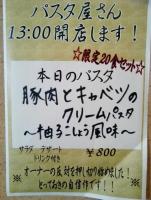 パスタ屋さん
13:00開店します!
☆限定20食セット☆
本日のパスタ
豚肉とキャベツの
クリームパスタ
〜柚子こしょう風味〜
サラダ デザート
ドリンク付き
¥800
※オーナーの反対を押し切り始めました!
とっておきの自信作です!! ※